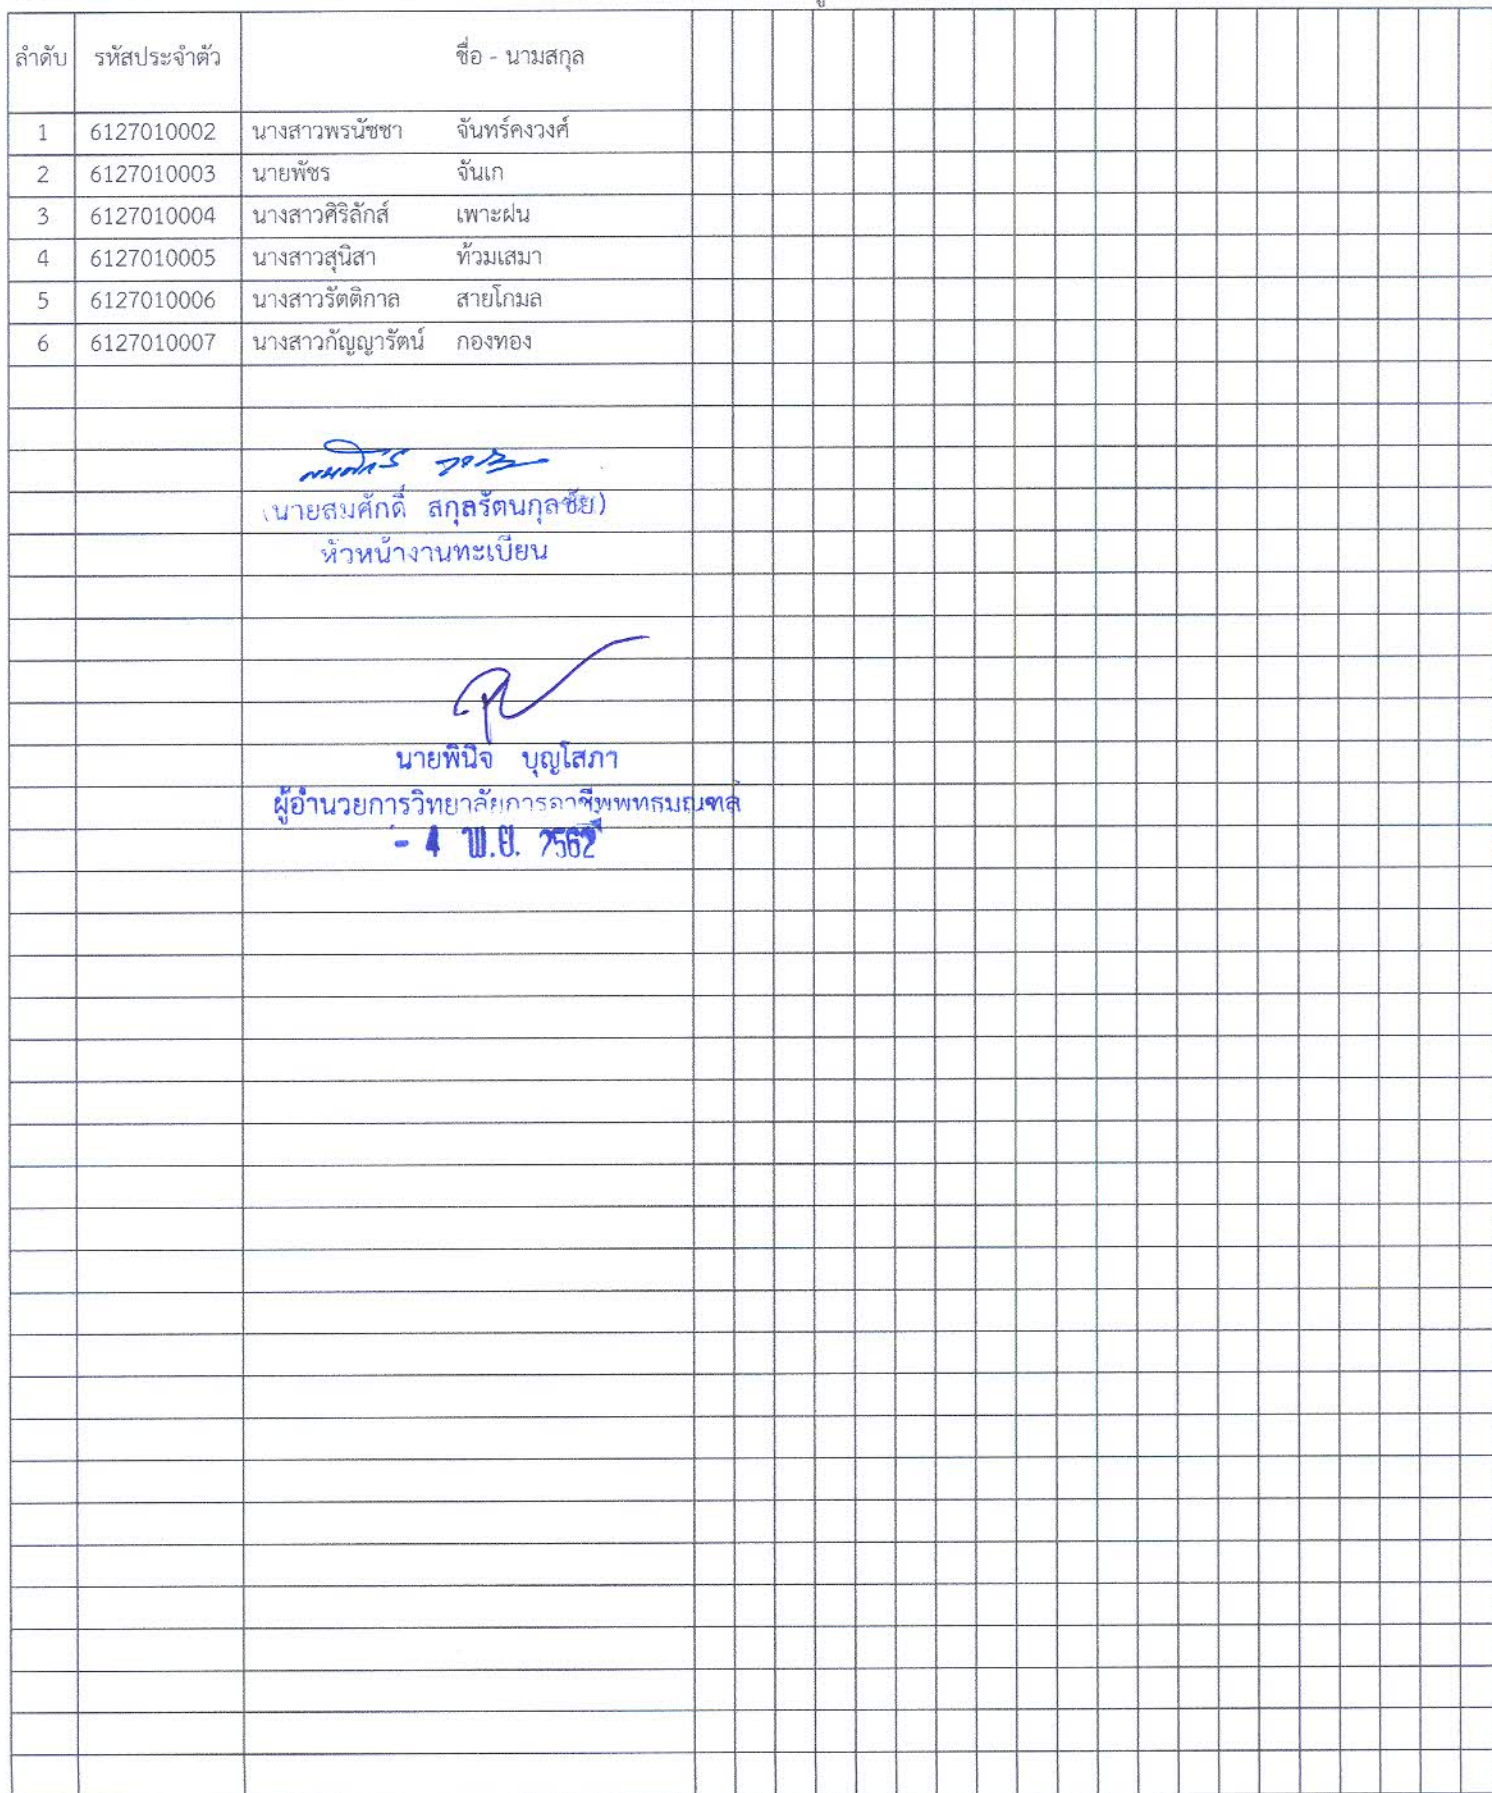 ลำดับ รหัสประจำตัว ชื่อ - นามสกุล
1 6127010002 นางสาวพรนัชชา จันทร์คงวงศ์
2 6127010003 นายพัชร จันเก
3 6127010004 นางสาวศิริลักส์ เพาะฝน
4 6127010005 นางสาวสุนิสา ท้วมเสมา
5 6127010006 นางสาวรัตติกาล สายโกมล
6 6127010007 นางสาวกัญญารัตน์ กองทอง
(นายสมศักดิ์ สกุลรัตนกุลชัย)
หัวหน้างานทะเบียน
นายพินิจ บุญโสภา
ผู้อำนวยการวิทยาลัยการอาชีพพุทธมณฑล
- 4 พ.ย. 2562